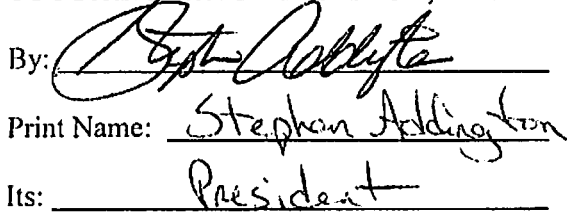 By: Stephon Addington
Print Name: Stephon Addington
Its: President